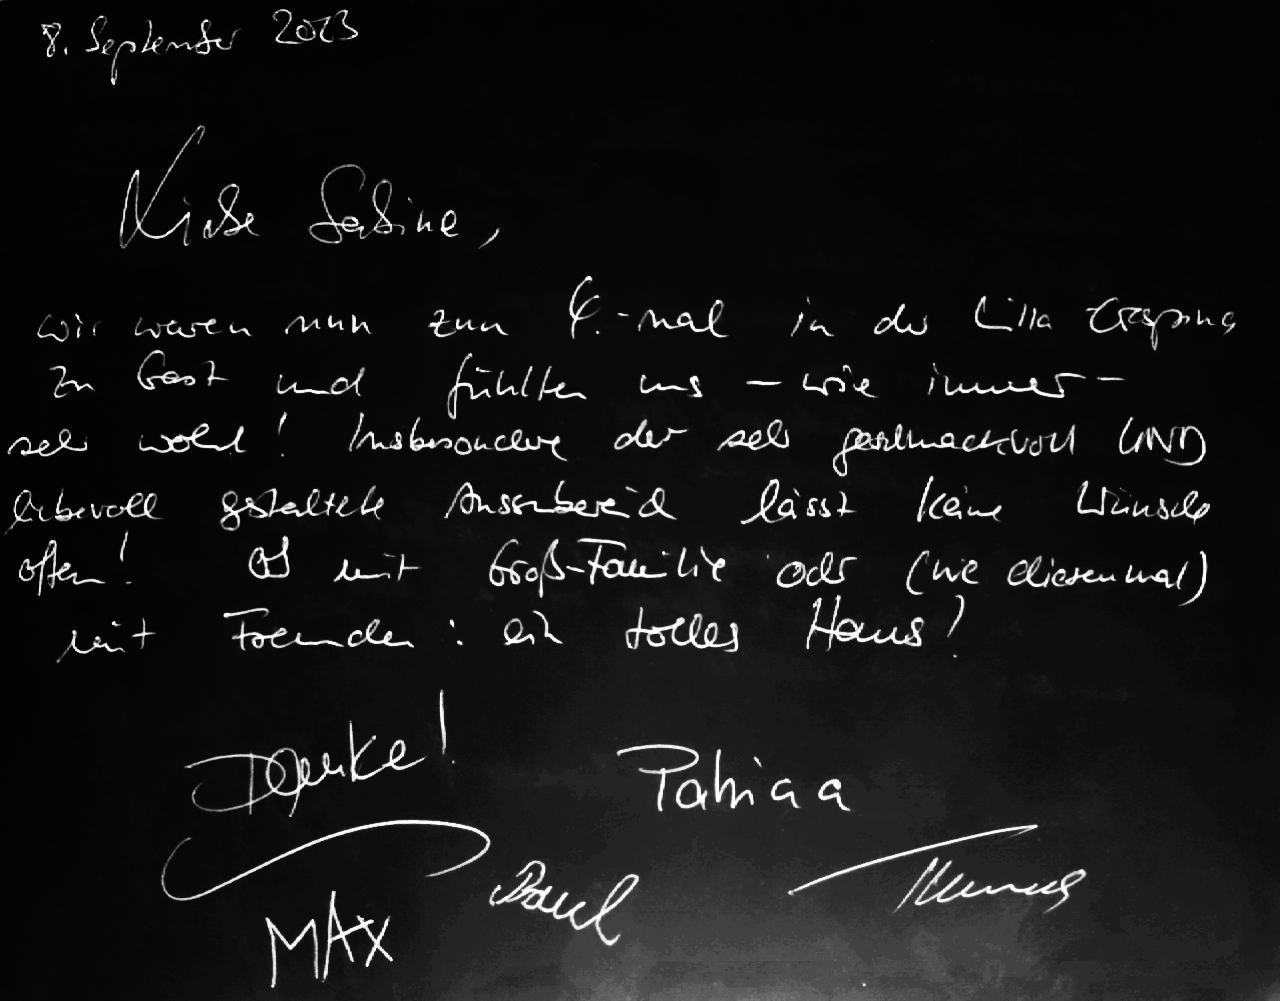 8. September 2023
Liebe Sabine,
wir waren nun zum 4.-mal in der Villa
zu Gast und fühlten uns – wie immer –
sehr wohl! Insbesondere der sehr geschmackvoll UND
liebevoll gestaltete Aussenbereich lässt keine Wünsche
offen! Ob mit Groß-Familie oder (wie diesesmal)
mit Freunden: ein tolles Haus!
Danke!
Patricia
Paul
Thomas
MAX